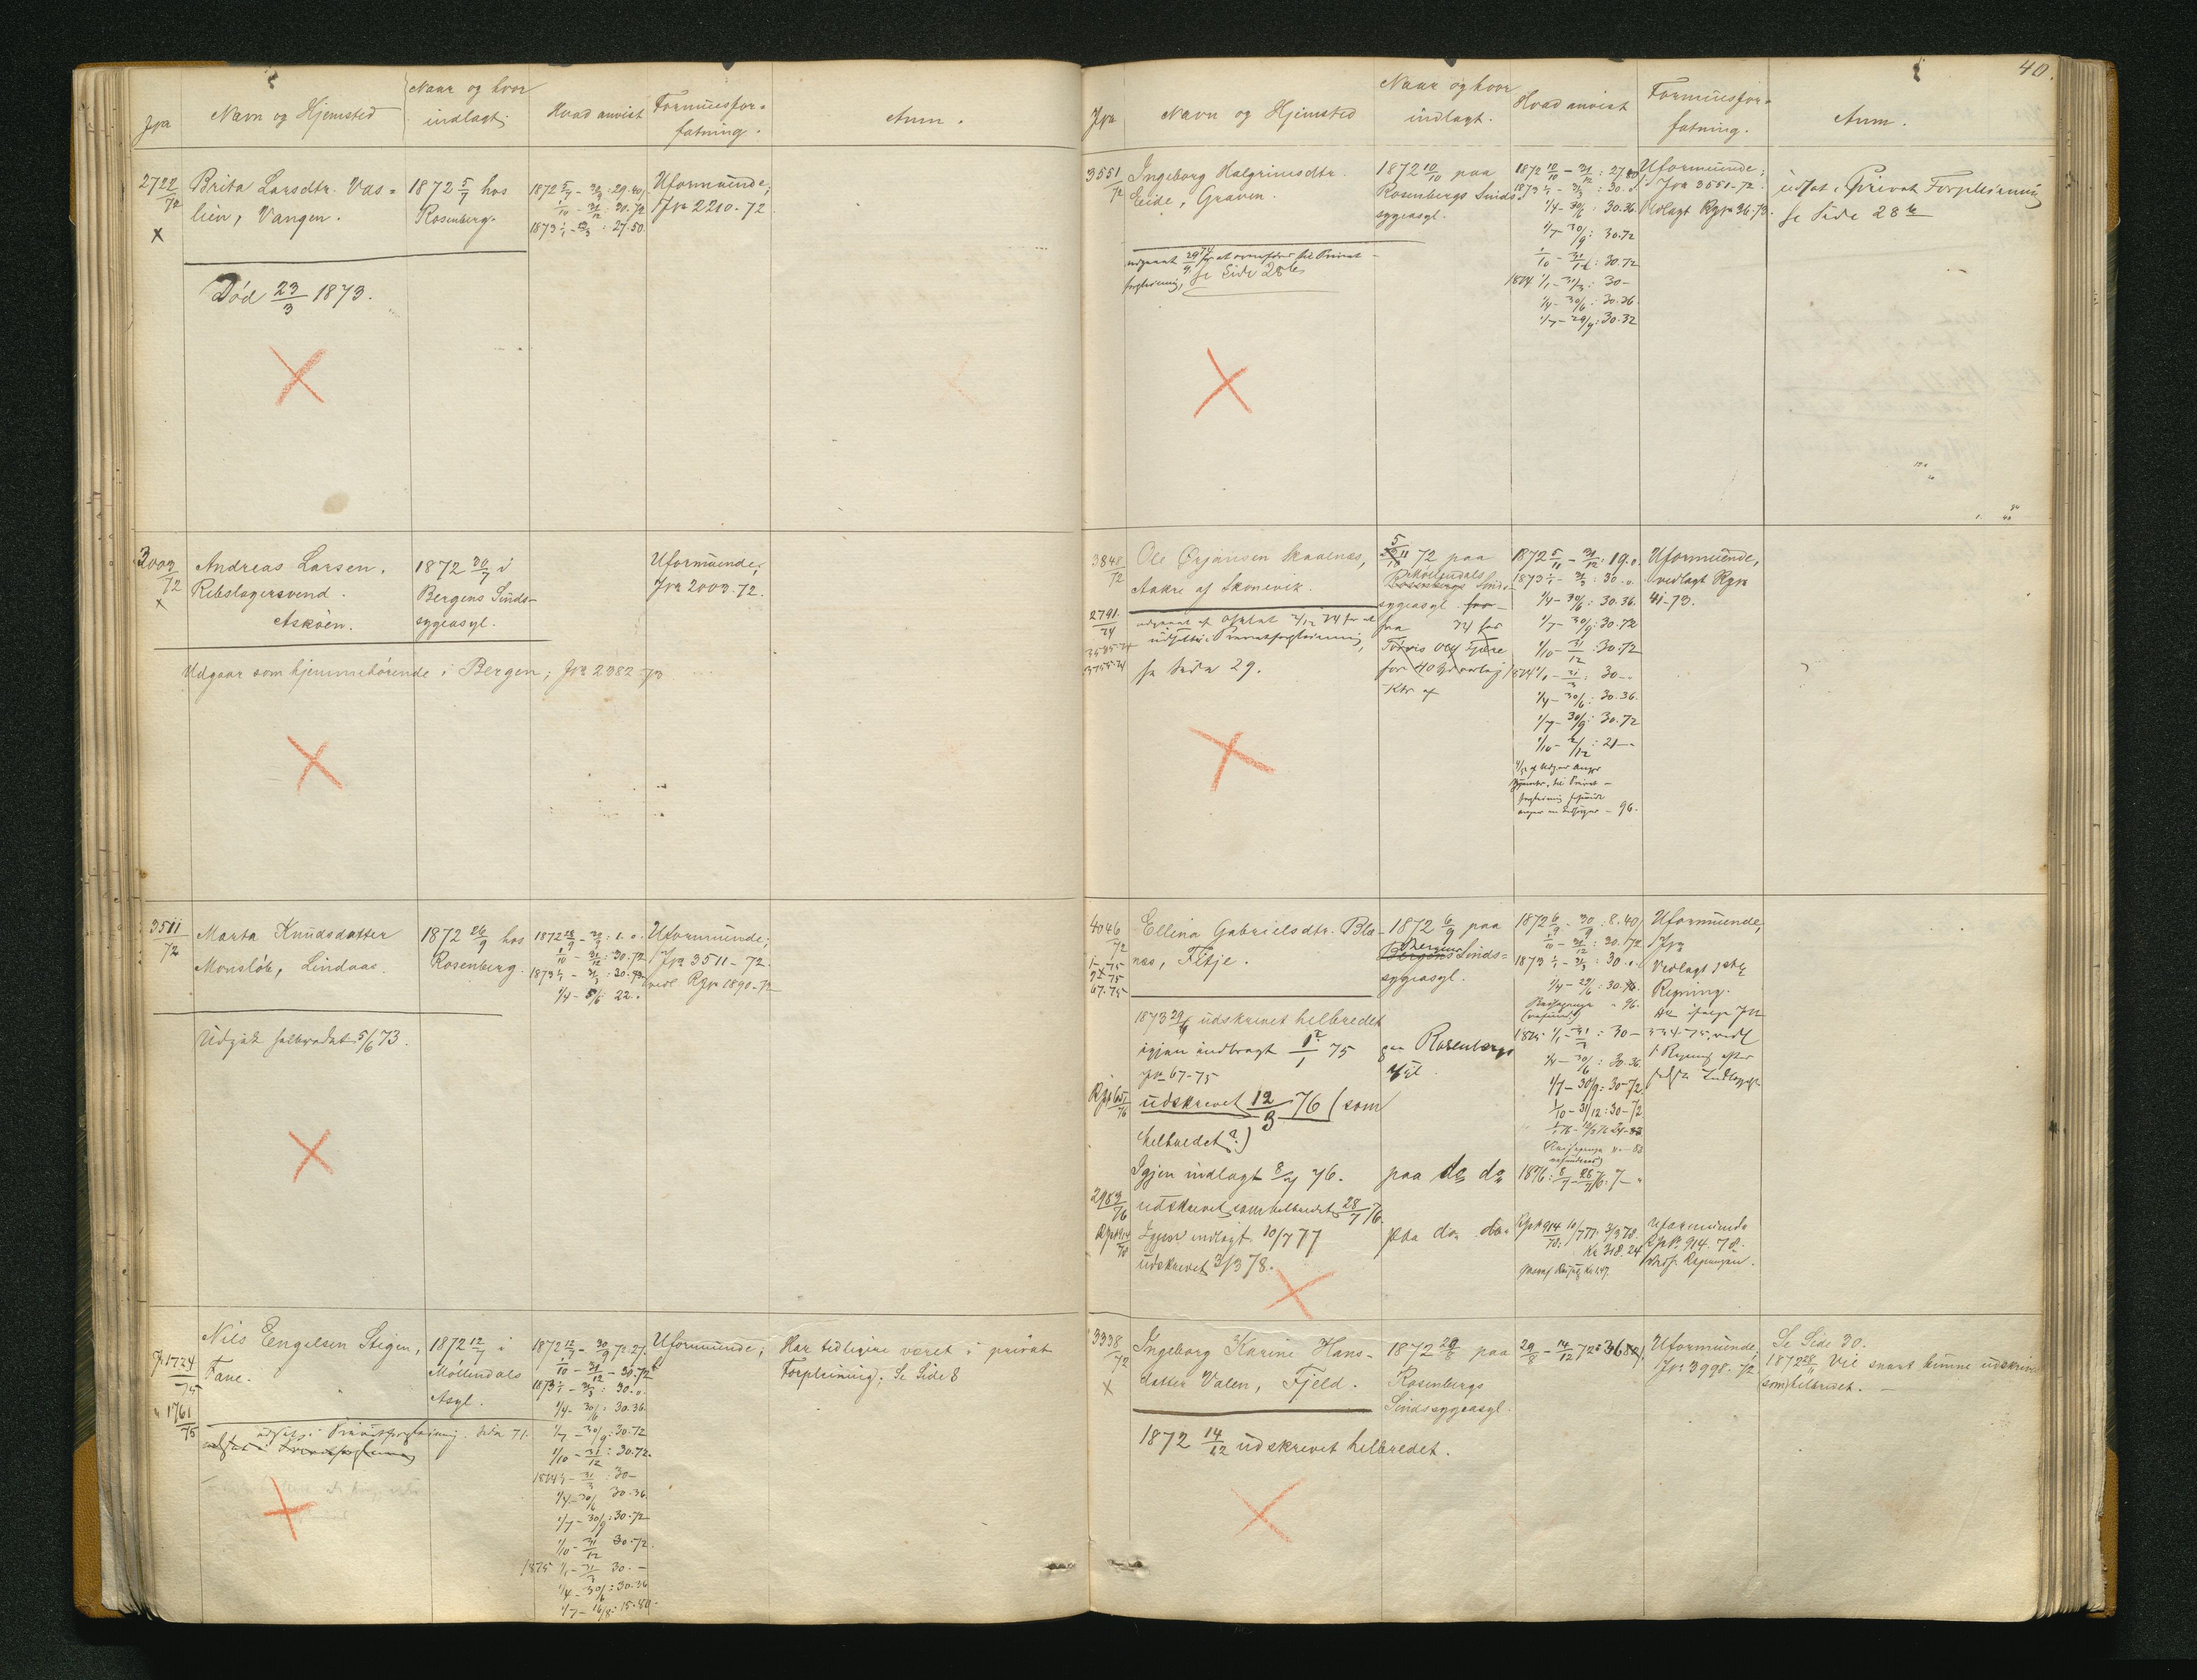 Jνa
Navn og Hjemsted
Naar og hvor
indlagt.
Hvad anvist
Formuesfor=
fatning.
Anm.
2722/72
Brita Larsdtr. Vas=
lien, Vangen.
1872 5/7 hos
Rosenberg.
1872 5/7 - 30/9 : 29.40,
1/10 - 31/12 : 30.72
1873 1/1 - 23/3 : 27.50.
Uformuende,
Jno 2210-72
X
Død 23/3 1873.
3003/72
Andreas Larsen,
Rebslagersvend.
Askøen.
1872 30/7 i
Bergens Sinds-
sygeasyl.
Uformuende,
Jno 2003.72.
X
Udgaar som hjemmehørende i Bergen; Jno 2382-73
3511/72
Marta Knudsdatter
Monsløb, Lindaas.
1872 28/9 hos
Rosenberg.
1872 28/9 - 30/9 : 1. 0.
1/10 - 31/12 : 30.72
1873 1/1 - 31/3 : 30.
1/4 - 5/6 22..
Uformuende;
Jno 3511-72.
vedl Rjno 1890-72
Udgik helbredet 5/6 73.
J. 1724/75
" 1761/75
Nils Engelsen Stigen,
Fane.
1872 12/7 i
Möllendals
Asyl.
1872 12/7 - 30/9 72: 27.
1/10 - 31/12 - 30.72
1873 1/1 - 31/3 : 30. 0.
1/4 - 30/6 : 30.36.
1/7 - 30/9 : 30.72
1/10 - 31/12 : 30.72.
1874 1/1 - 31/3 : 30-
1/4 - 30/6 30.36.
1/7 - 30/9 : 30.72
1/10 - 31/12 30.72.
1875 1/1 - 31/3 30.-
1/4 - 30/6 : 30.36
1/7 - 16/8 : 15.80.
Uformuende;
Har tidligere været i privat
Forpleining; Se Side 8
udsat i Privatforpleining. Side 71.
40.
Jno
Navn og Hjemsted
Naar og hvor
indlagt.
Hvad anvist
Formuesfor=
fatning.
Anm.
3551/72
Ingeborg Halgrimsdtr.
Eide, Graven.
1872 10/10 paa
Rosenbergs Sinds
sygeasyl.
1872 10/10 - 31/12 : 27.
1873 1/1 - 31/3 : 30. 0.
1/4 - 30/6 : 30.36.
1/7 - 30/9 : 30.72
1/10 - 31/12 : 30.72
1874 1/1 - 31/3 : 30-
1/4 - 30/6 : 30.36
1/7 - 29/9 : 30.32
Uformuende;
Jno 3551-72.
vedlagt Rjno 36.73.
udsat i Privat Forpleining
se Side 28
udgaaet 29/9 74 for at overføres til Privat-
forpleining, se Side 28
3848/72
2791/74
3585-74
3755-74
Ole Ørjansen Skaalnæs,
Aakre af Skonevik.
5/11 72 paa
Möllendals
Rosenbergs Sinds-
sygeasyl
1872 5/11 - 31/12 : 19. 0.
1873 1/1 - 31/3 : 30. 0.
1/4 - 30/6 : 30.36.
1/7 - 30/9 : 30.72
1/10 - 31/12 : 30.72
1874 1/1 - 31/3 : 30-.
1/4 - 30/6 : 30.36.
1/7 - 30/9 : 30.72
1/10 - 2/12 : 21-.
96.
Uformuende,
vedlagt Rjno
41-73.
udgaaet af Asylet 2/12 74 for at
udsættes i Privatforpleining,
se Side 29.
4046/72
1-75
67-75
Ellina Gabrielsdtr. Blæ-
næs, Fitje.
1872 6/9 paa
Bergens Sinds=
sygeasyl.
1872 6/9 - 30/9 : 8.40
1/10 - 31/12 : 30.72
1873 1/1 - 31/3 : 30. 0.
1/4 - 29/6 : 30.
1875 1/1 - 31/3 : 30-
1/4 - 30/6 : 30.36
1/7 - 30/9 : 30-72
1/10 - 31/12 : 30-72
Uformuende,
Jno
Vedlagt
Regning.
1873 29/6 udskrevet helbredet
igjen indbragt 1/1 75
Jno 67-75
paa Rosenbergs
Asyl.
udskrevet 12/3 76 (som
helbredet?)
Igjen indlagt 8/7 76.
paa do do
1876: 8/7 - 28/7 76. 7-
2983/76
udskrevet som helbredet 28/7 76.
Igjen indlagt 10/7 77
udskrevet 3/3 78.
paa do do
Rjno 914/78. 10/7 77-3/3 78.
Kr 318.24
Uformuende
Rjno 914.78.
vedl. Regningen.
3338/72
X
Ingeborg Karine Hans-
datter Valen, Fjeld.
1872 29/8 paa
Rosenbergs
Sindssygeasyl.
29/8 - 14/12 72: 36
Uformuende,
Jno 3998-72
Se Side 30.
1872 28/11 Vil snart kunne udskrives
som helbredet. -
1872 14/12 udskrevet helbredet.